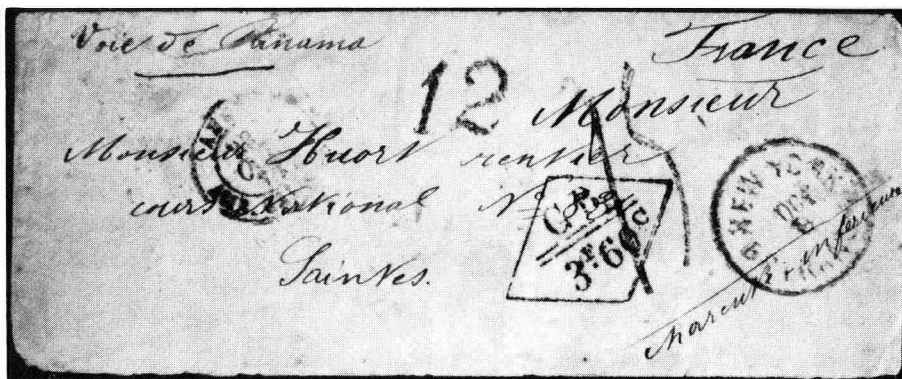 Voie de Panama
France
12
Monsieur
Monsieur Huort rentier
cours National Nº
Saintes.
3F.60c
NEW YORK
OCT
Charente inférieure